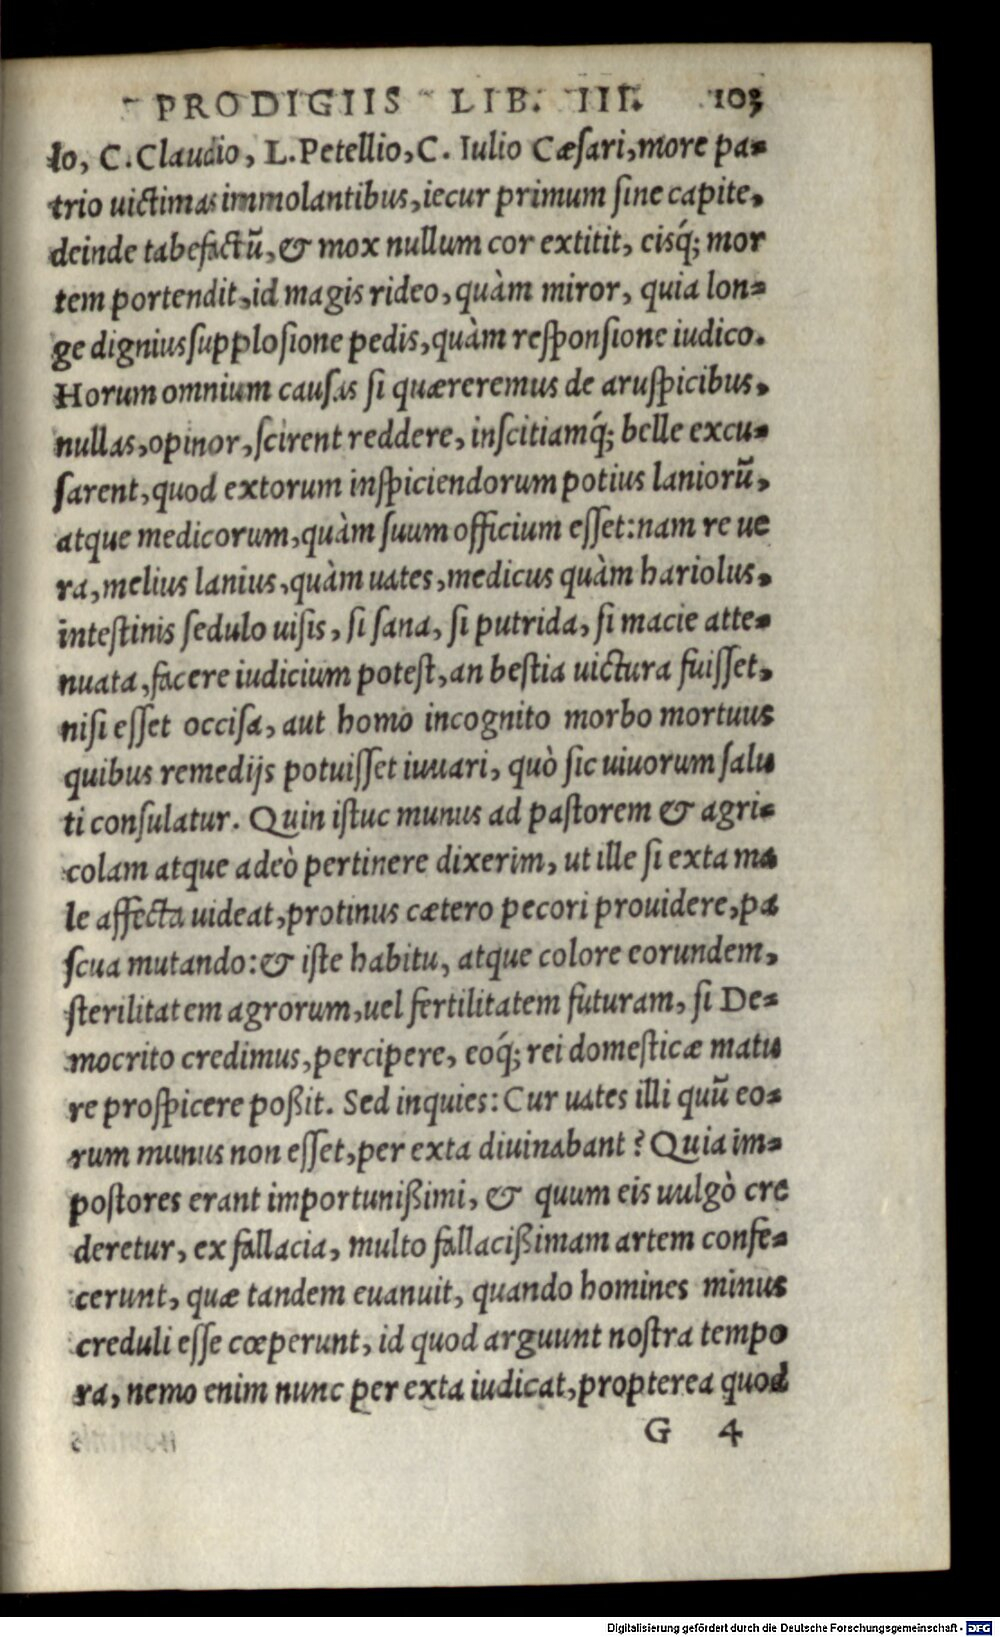 PRODIGIIS LIB. III. 103
lo, C. Claudio, L. Petellio, C. Iulio Cæsari, more pa-
trio uictimas immolantibus, iecur primum sine capite,
deinde tabefactū, & mox nullum cor extitit, eisq́; mor
tem portendit, id magis rideo, quàm miror, quia lon-
ge dignius supplosione pedis, quàm responsione iudico.
Horum omnium causas si quæreremus de aruspicibus,
nullas, opinor, scirent reddere, inscitiamq́; belle excu-
sarent, quod extorum inspiciendorum potius laniorū,
atque medicorum, quàm suum officium esset: nam re ue
ra, melius lanius, quàm uates, medicus quàm hariolus,
intestinis sedulo uisis, si sana, si putrida, si macie atte-
nuata, facere iudicium potest, an bestia uictura fuisset,
nisi esset occisa, aut homo incognito morbo mortuus
quibus remedijs potuisset iuuari, quò sic uiuorum salu
ti consulatur. Quin istuc munus ad pastorem & agri-
colam atque adeò pertinere dixerim, ut ille si exta ma
le affecta uideat, protinus cætero pecori prouidere, pa
scua mutando: & iste habitu, atque colore eorundem,
sterilitatem agrorum, uel fertilitatem futuram, si De-
mocrito credimus, percipere, eoq́; rei domesticæ matu
re prospicere poßit. Sed inquies: Cur uates illi quū eo-
rum munus non esset, per exta diuinabant? Quia im-
postores erant importunißimi, & quum eis uulgò cre
deretur, ex fallacia, multo fallacißimam artem confe-
cerunt, quæ tandem euanuit, quando homines minus
creduli esse cœperunt, id quod arguunt nostra tempo
ra, nemo enim nunc per exta iudicat, propterea quod
G 4
Digitalisierung gefördert durch die Deutsche Forschungsgemeinschaft - DFG